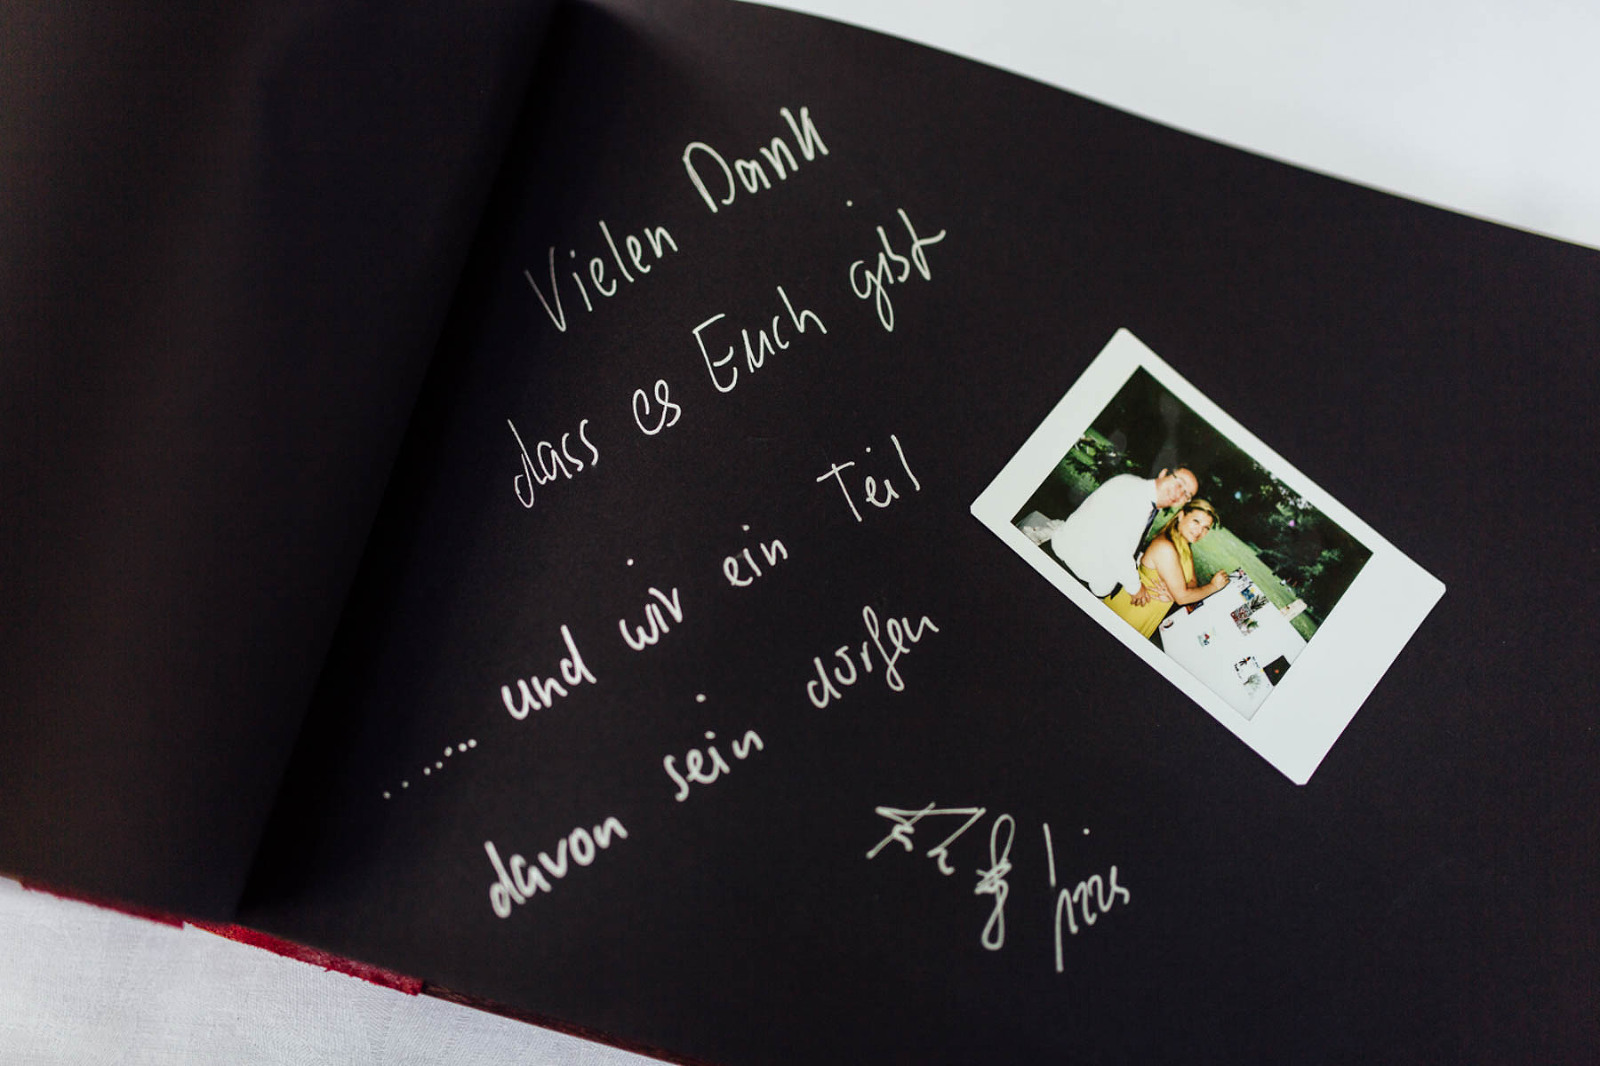 Vielen Dank
dass es Euch gibt
....... und wir ein Teil
davon sein dürfen